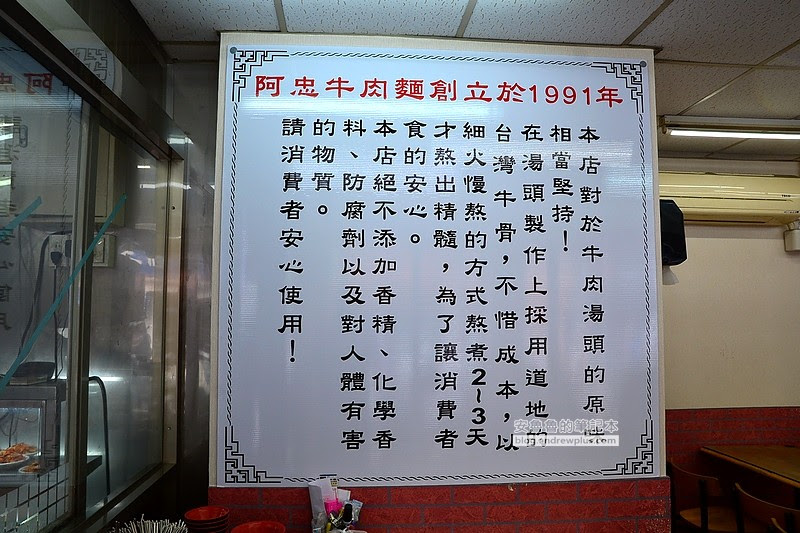 阿忠牛肉麵創立於1991年
本店對於牛肉湯頭的原味
相當堅持！
在湯頭製作上採用道地的
台灣牛骨，不惜成本，以
細火慢熬的方式熬煮2~3天
才熬出精髓，為了讓消費者
食的安心。
本店絕不添加香精、化學香
料、防腐劑以及對人體有害
的物質。
請消費者安心使用！
安魯魯的筆記本
blog.andrewplus.com